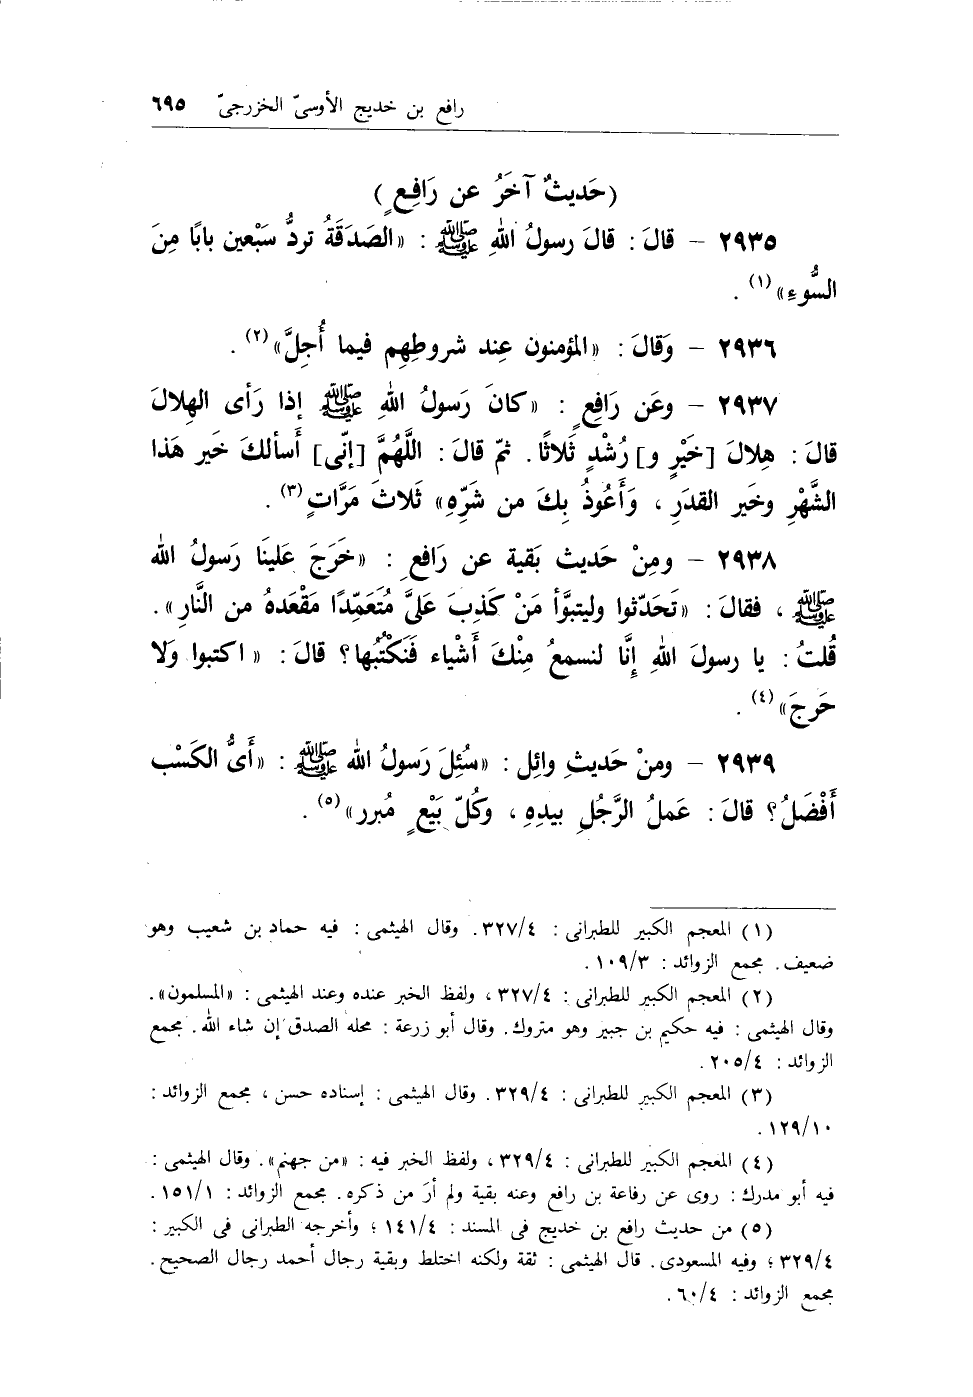 رافع بن خديج الأوسىّ الخزرجىّ ٦٩٥
(حَديثٌ آخَرُ عن رَافِعٍ)
٢٩٣٥ – قالَ: قالَ رسولُ اللهِ ﷺ: «الصَدَقَةُ تردُّ سَبْعين بابًا مِنَ
السُّوءِ»(١).
٢٩٣٦ – وَقالَ: «المؤمنون عِند شروطِهِم فيما أُحِلَّ»(٢).
٢٩٣٧ – وعَن رَافِعٍ: «كانَ رَسولُ اللهِ ﷺ إذا رَأى الهِلالَ
قالَ: هِلالَ [خَيْرٍ و] رُشْدٍ ثَلاثًا. ثمّ قالَ: اللَّهُمَّ [إنّى] أَسألكَ خَير هَذا
الشَّهْرِ وخَير القدَرِ، وَأَعُوذُ بِكَ من شَرِّهِ» ثَلاثَ مَرَّاتٍ(٣).
٢٩٣٨ – ومِنْ حَديث بَقية عن رَافعِ: «خَرَجَ عَلينَا رَسولُ الله
ﷺ، فقالَ: «تَحَدّثوا وليتبوَّأ مَنْ كَذِبَ عَلىَّ مُتَعَمِّدًا مَقْعَدهُ من النَّارِ».
قُلتُ: يا رسولَ اللهِ إنَّا لنسمعُ مِنْكَ أَشْياء فَنَكْتُبُها؟ قالَ: «اكتبوا وَلا
حَرجَ»(٤).
٢٩٣٩ – ومنْ حَديثِ وائِل: «سُئِلَ رَسولُ الله ﷺ: «أَىُّ الكَسْب
أَفْضَلُ؟ قالَ: عَملُ الرَّجُلِ بيدِهِ، وكُلّ بَيْعٍ مُبرر»(٥).
(١) المعجم الكبير للطبرانى: ٣٢٧/٤. وقال الهيثمى: فيه حماد بن شعيب وهو
ضعيف. مجمع الزوائد: ١٠٩/٣.
(٢) المعجم الكبير للطبرانى: ٣٢٧/٤، ولفظ الخبر عنده وعند الهيثمى: «المسلمون».
وقال الهيثمى: فيه حكيم بن جبير وهو متروك. وقال أبو زرعة: محله الصدق إن شاء الله. مجمع
الزوائد: ٢٠٥/٤.
(٣) المعجم الكبير للطبرانى: ٣٢٩/٤. وقال الهيثمى: إسناده حسن، مجمع الزوائد:
١٢٩/١٠.
(٤) المعجم الكبير للطبرانى: ٣٢٩/٤، ولفظ الخبر فيه: «من جهنم». وقال الهيثمى:
فيه أبو مدرك: روى عن رفاعة بن رافع وعنه بقية ولم أرَ من ذكره. مجمع الزوائد: ١٥١/١.
(٥) من حديث رافع بن خديج فى المسند: ١٤١/٤؛ وأخرجه الطبرانى فى الكبير:
٣٢٩/٤؛ وفيه المسعودى. قال الهيثمى: ثقة ولكنه اختلط وبقية رجال أحمد رجال الصحيح.
مجمع الزوائد: ٦٠/٤.